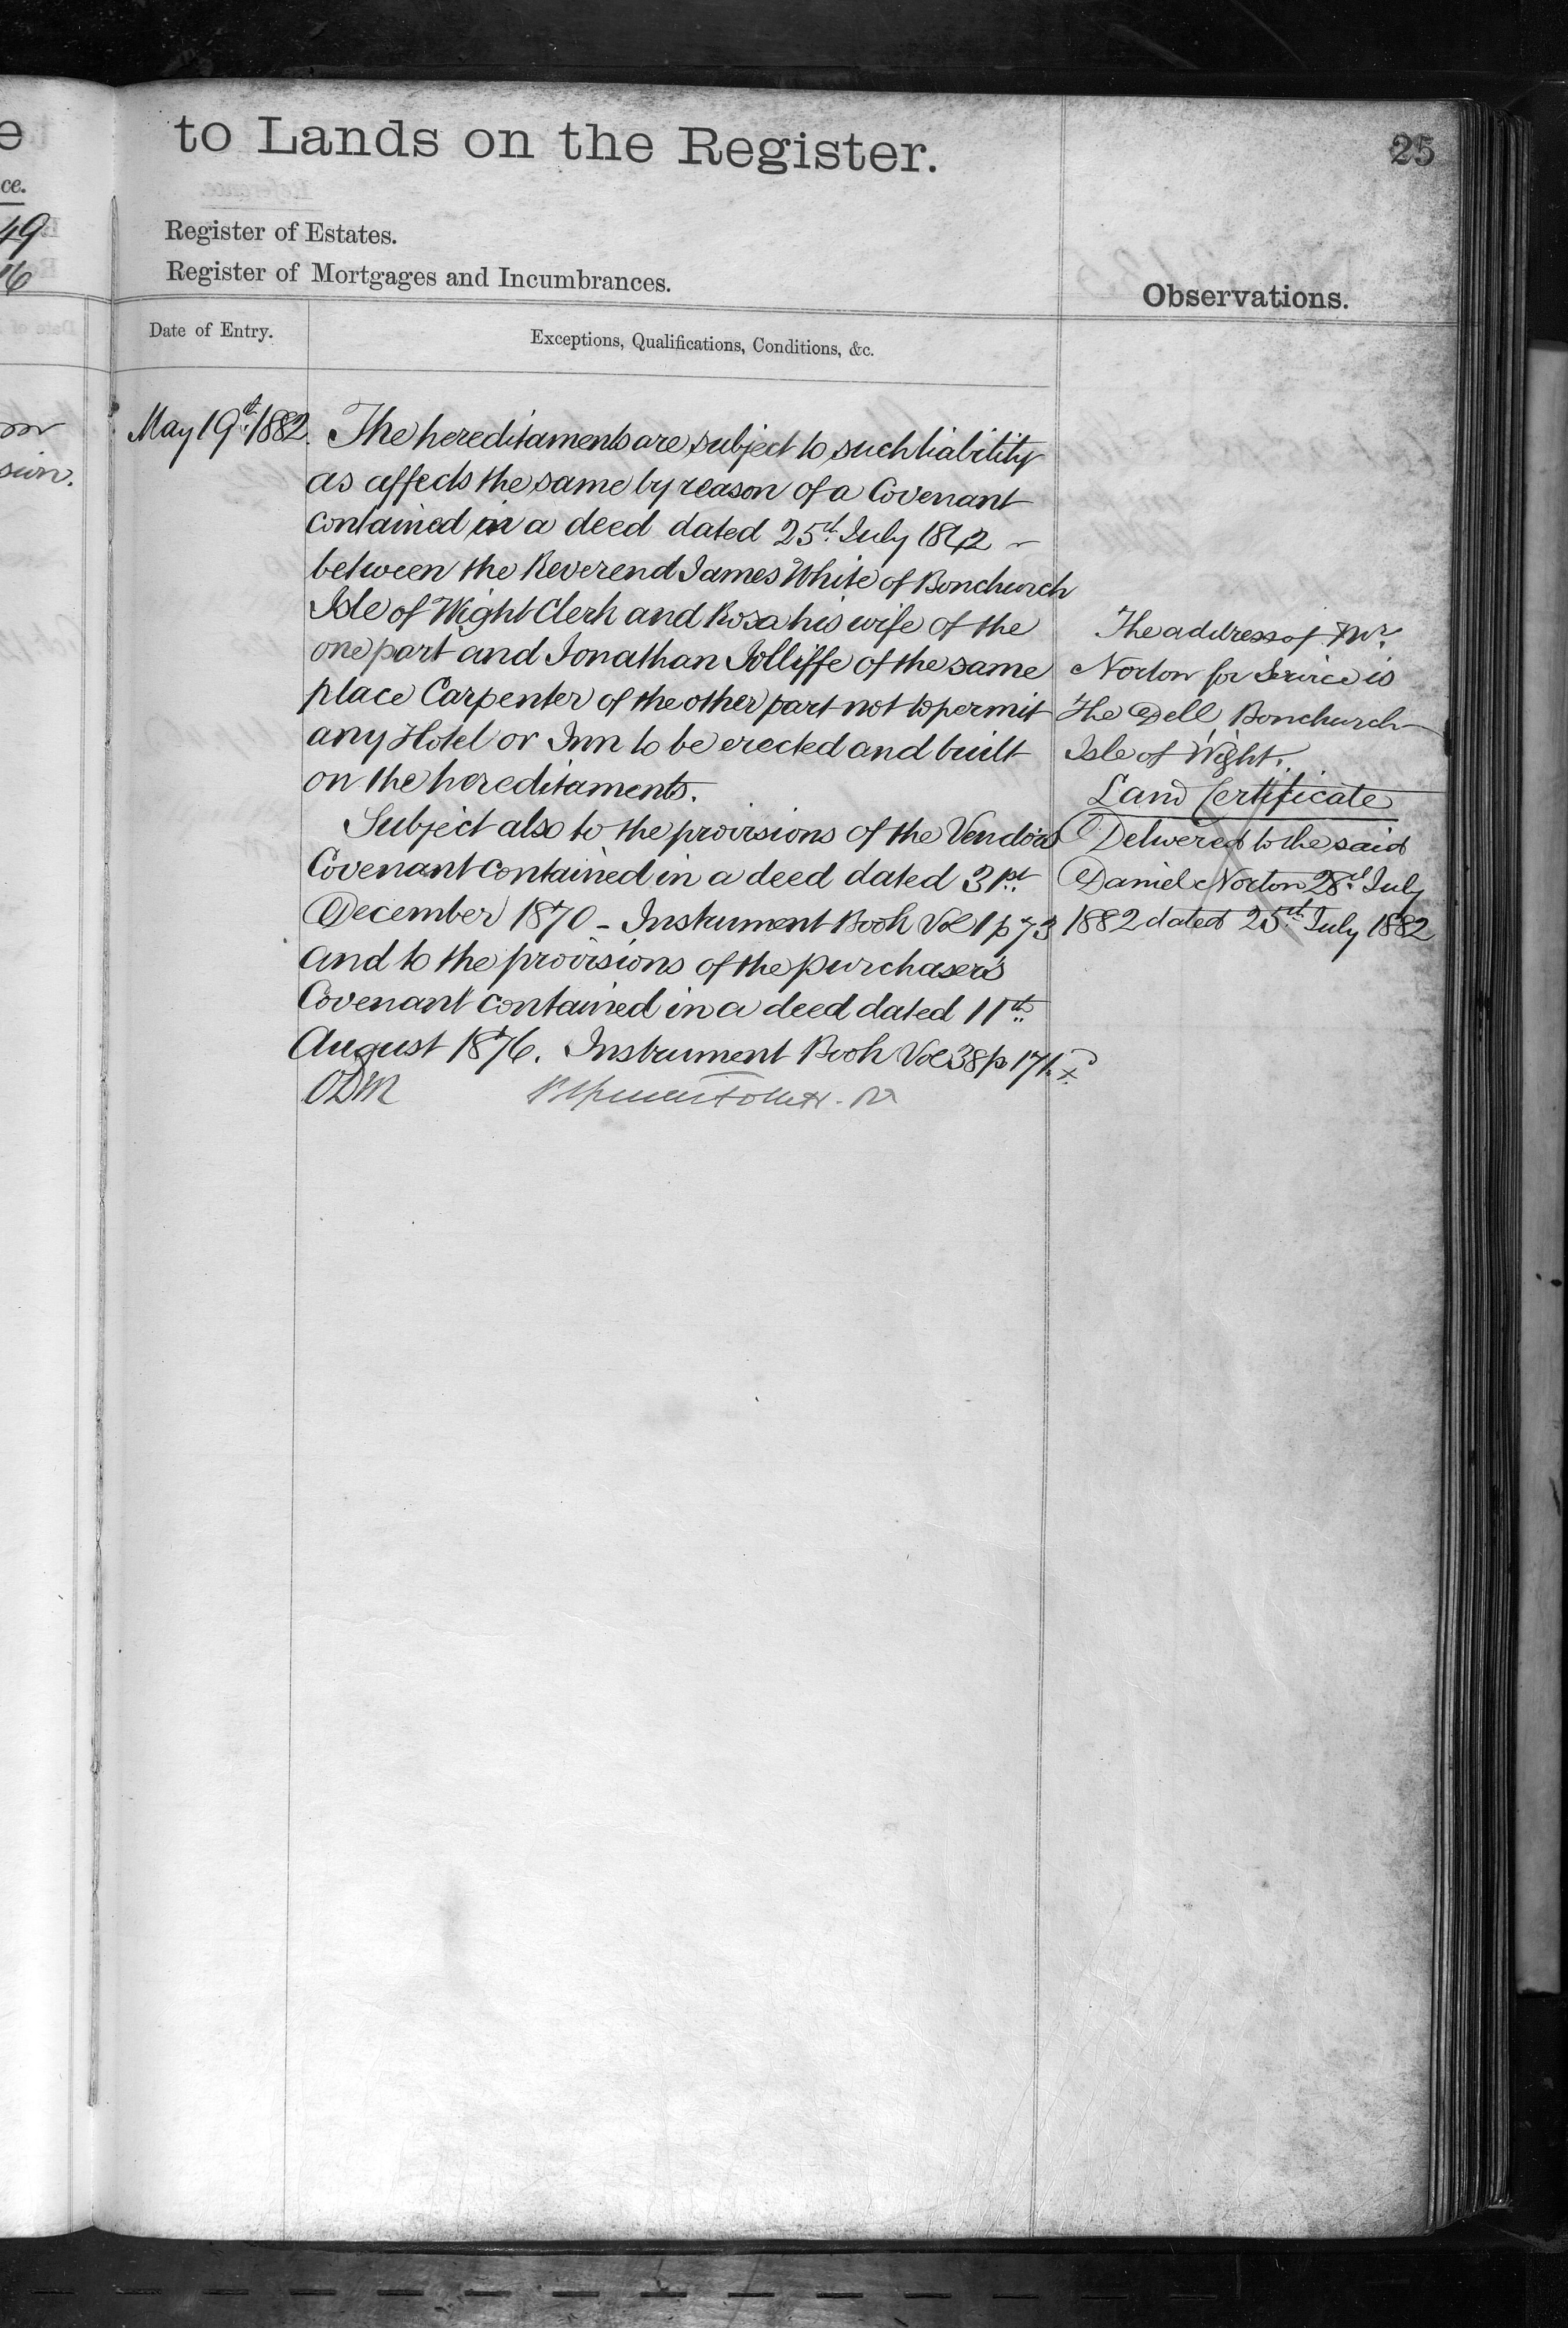 e
ce.
49
16
sion.
to Lands on the Register.
25
Register of Estates.
Register of Mortgages and Incumbrances.
Observations.
Date of Entry.
Exceptions, Qualifications, Conditions, &c.
May 19th 1882.
The hereditaments are subject to such liability
as affects the same by reason of a Covenant
contained in a deed dated 25th July 1842 –
between the Reverend James White of Bonchurch
Isle of Wight Clerk and Rosa his wife of the
one part and Jonathan Jolliffe of the same
place Carpenter of the other part not to permit
any Hotel or Inn to be erected and built
on the hereditaments.
Subject also to the provisions of the Vendors
Covenant contained in a deed dated 31st
December 1870 – Instrument Book Vol 1 p 73
and to the provisions of the purchaser's
Covenant contained in a deed dated 11th
August 1876. Instrument Book Vol 38 p 171. x
The address of Mr.
Norton for Service is
The Dell Bonchurch
Isle of Wight.
Land Certificate
Delivered to the said
Daniel Norton 28th July
1882 dated 25th July 1882